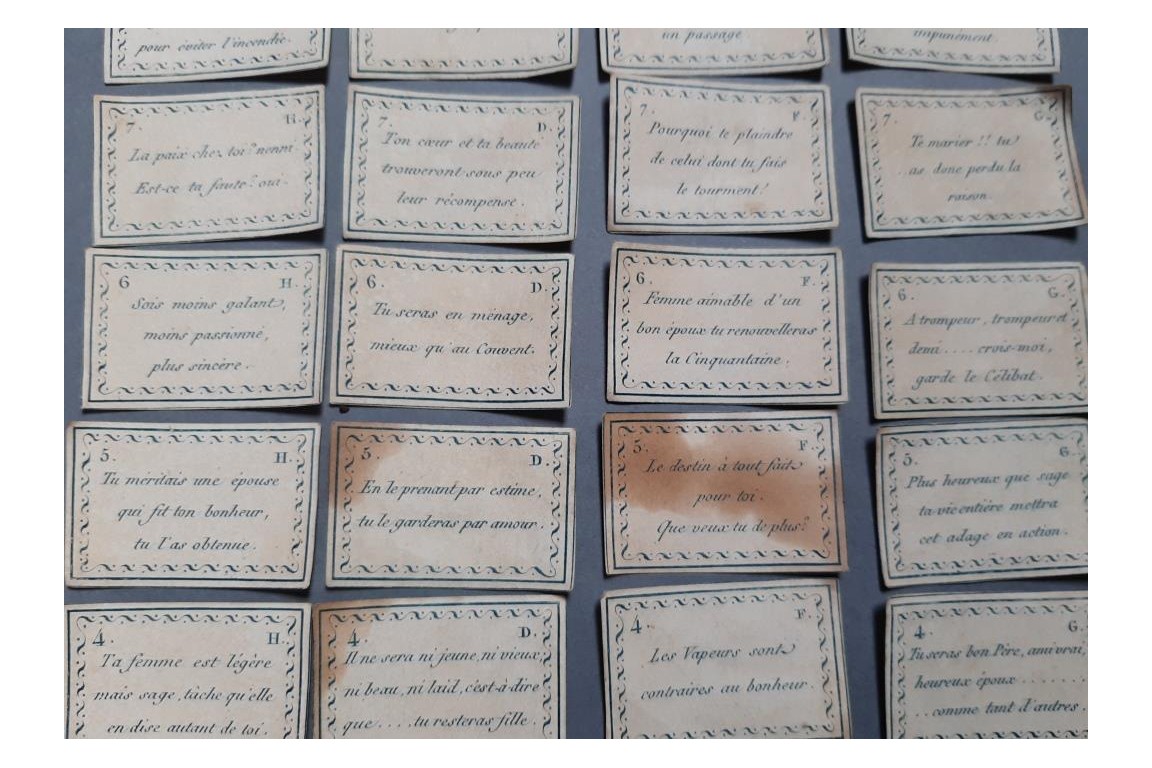 pour éviter l'incendie.
un passage.
impunément.
7. H.
La paix chez toi? nenni
Est-ce ta faute? oui.
7. D.
Ton cœur et ta beauté
trouveront sous peu
leur récompense.
7. F.
Pourquoi te plaindre
de celui dont tu fais
le tourment!
7. G.
Te marier!! tu
..as donc perdu la
raison.
6 H.
Sois moins galant,
moins passionné,
plus sincère.
6. D.
Tu seras en ménage,
mieux qu'au Couvent.
6. F.
Femme aimable d'un
bon époux tu renouvelleras
la Cinquantaine.
6. G.
A trompeur, trompeur et
demi.... crois-moi,
garde le Célibat.
5. H.
Tu méritais une épouse
qui fit ton bonheur,
tu l'as obtenue.
5. D.
En le prenant par estime,
tu le garderas par amour.
5. F.
Le destin à tout fait
pour toi.
Que veux tu de plus?
5. G.
Plus heureux que sage
ta vie entière mettra
cet adage en action.
4. H.
Ta femme est légère
mais sage, tâche qu'elle
en dise autant de toi.
4. D.
Il ne sera ni jeune, ni vieux,
ni beau, ni laid, c'est-à-dire
que....tu resteras fille.
4. F.
Les Vapeurs sont
contraires au bonheur.
4. G.
Tu seras bon Père, ami vrai,
heureux époux........
..comme tant d'autres.